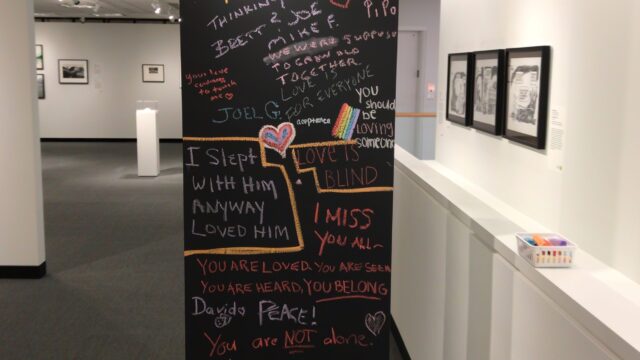 THINKING
PiPo
BRETT & JOE
MIKE F.
WE WERE SUPPOSE
TO GROW OLD
TOGETHER
your love
continues
to touch
me
LOVE IS
FOR EVERYONE
JOEL G.
acceptance
you
should
be
loving
someone
I SLEPT
WITH HIM
ANYWAY
LOVED HIM
LOVE IS
BLIND
I MISS
YOU ALL~
YOU ARE LOVED, YOU ARE SEEN
YOU ARE HEARD, YOU BELONG
Davids
PEACE!
You are NOT alone.